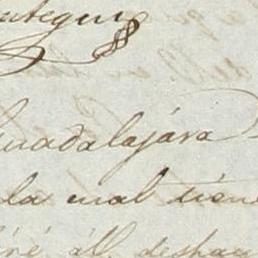 utegui
Guadalajára
la cual tiene
iré áll deshac